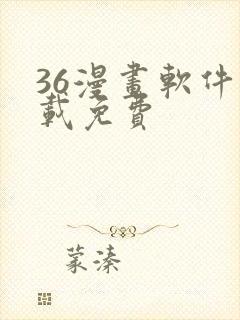 36漫畫軟件
載免費
蒙溱